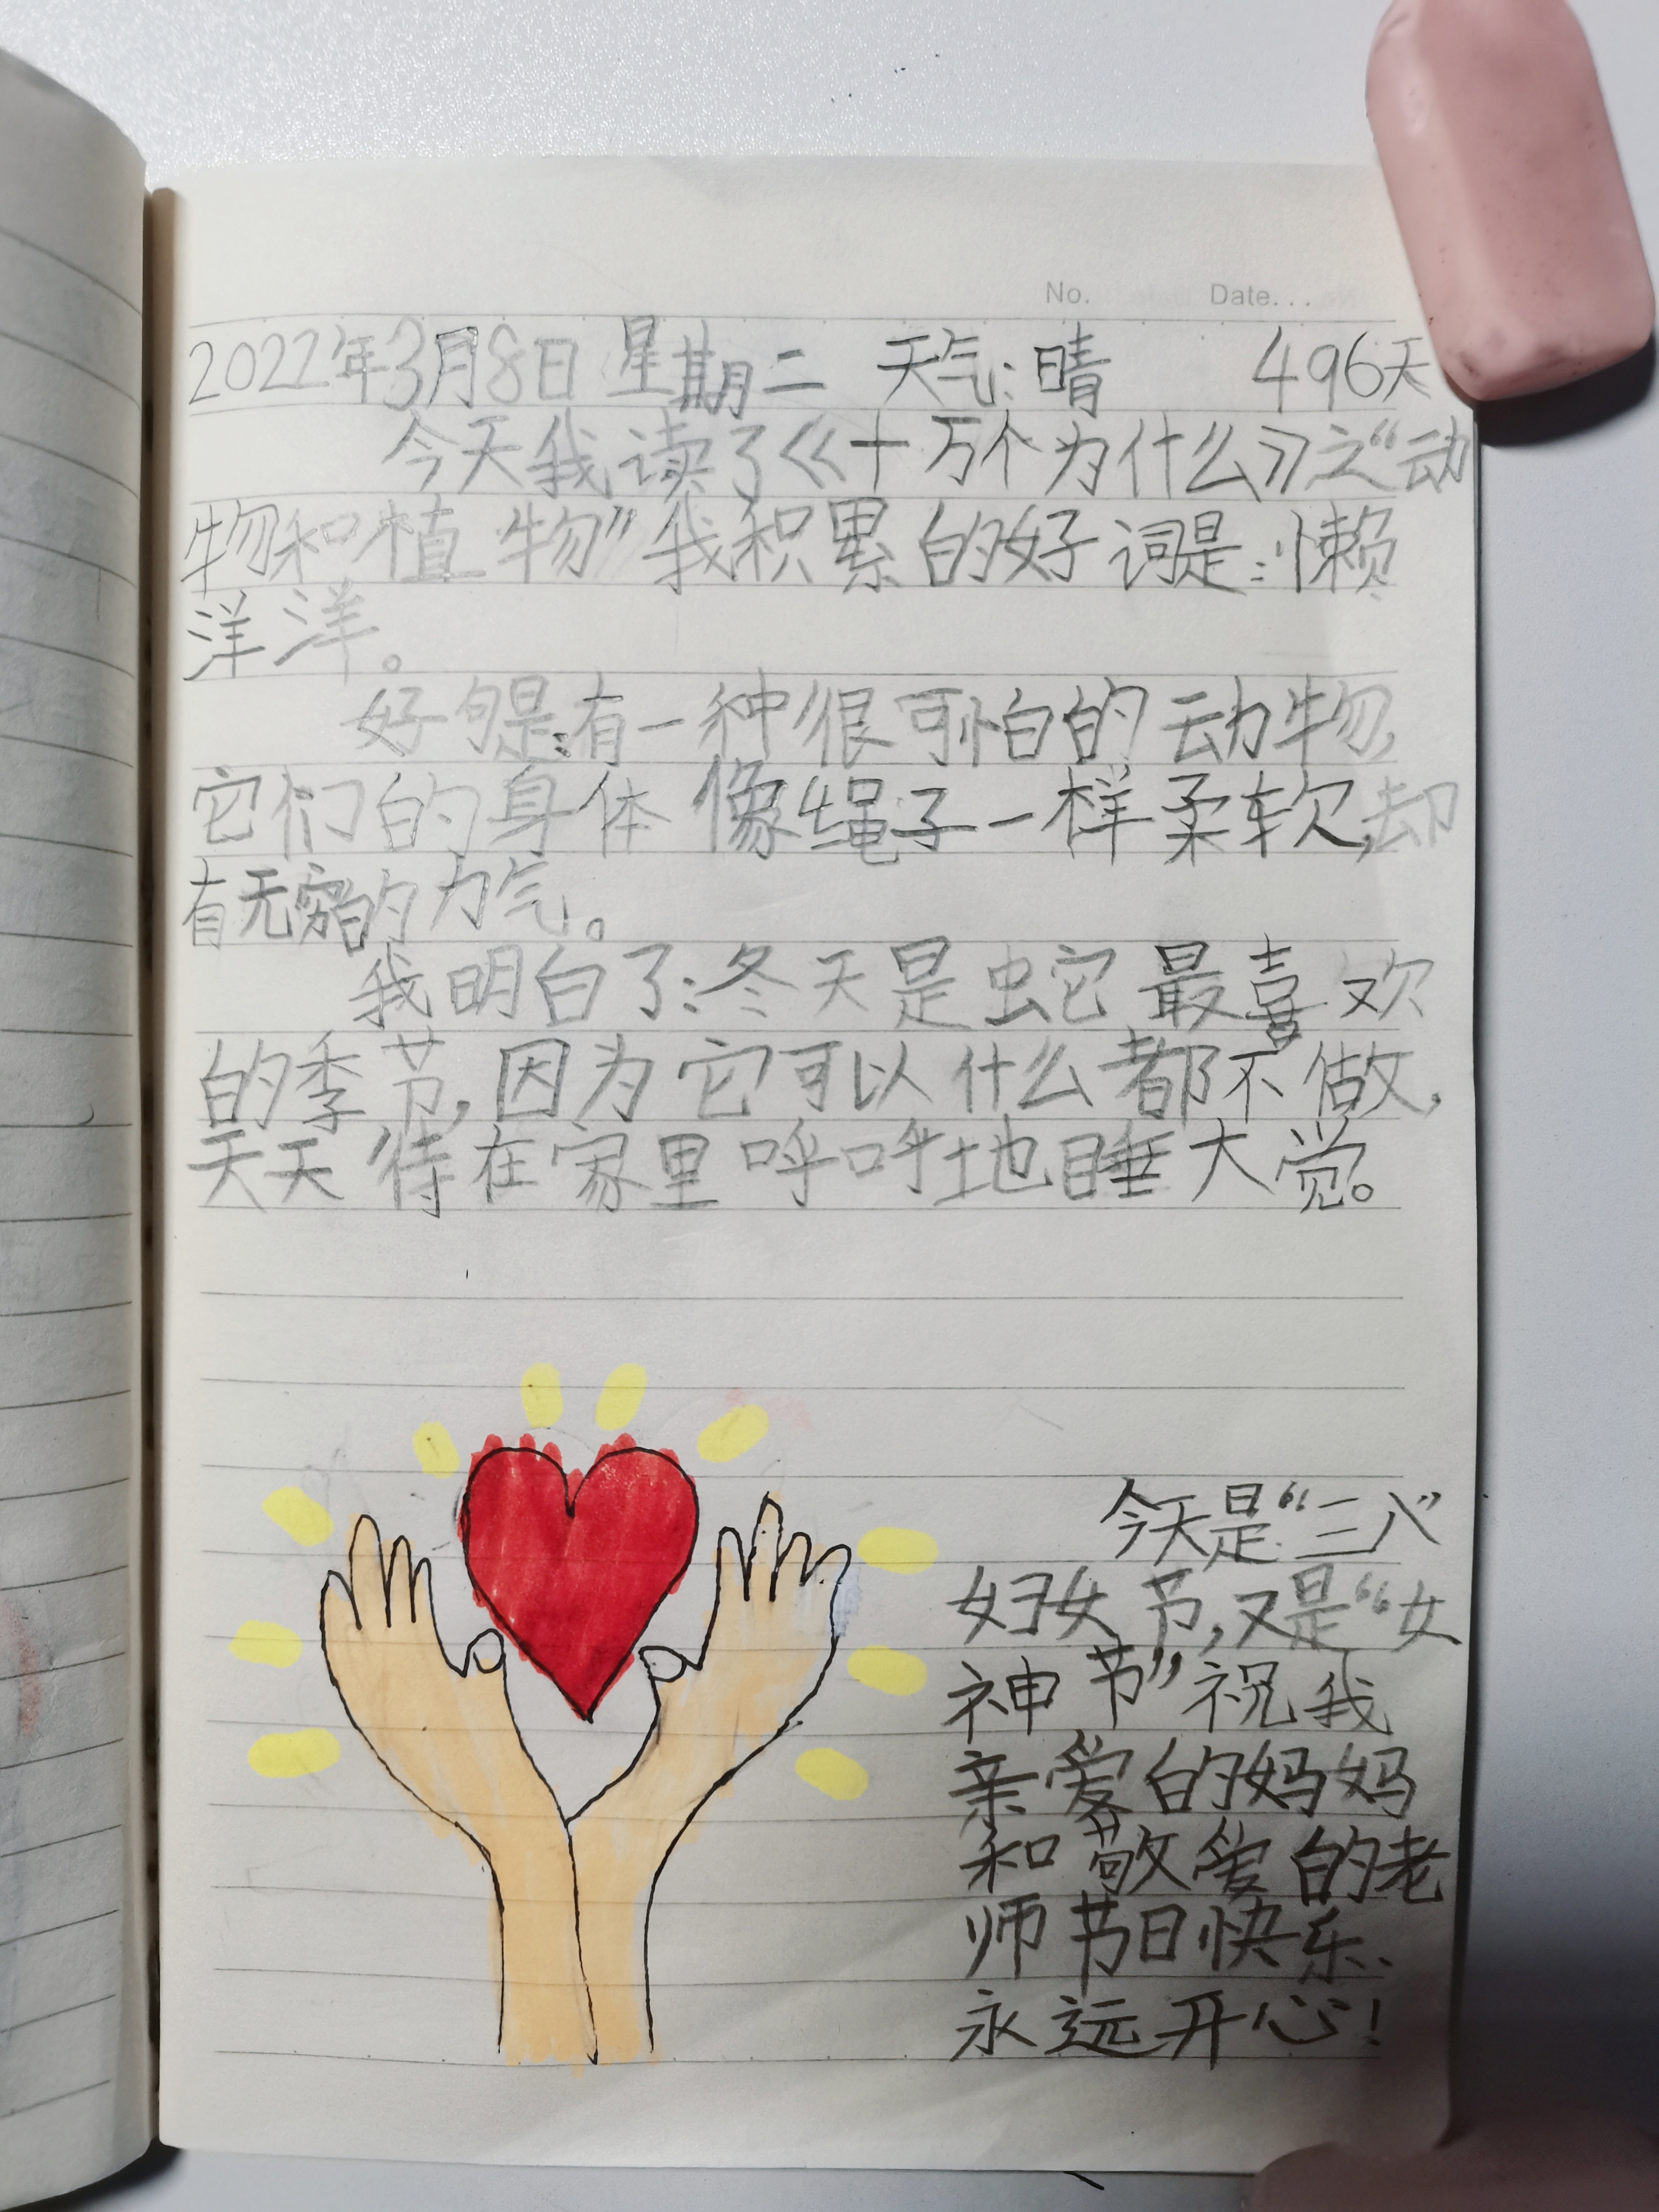 No.     Date...
2022年3月8日 星期二 天气:晴 496天
今天我读了《十万个为什么》之“动
物和植物”我积累的好词是:懒
洋洋。
好句是:有一种很可怕的动物,
它们的身体像绳子一样柔软,却
有无穷的力气。
我明白了:冬天是蛇最喜欢
的季节,因为它可以什么都不做,
天天待在家里呼呼地睡大觉。
今天是“三八”
妇女节,又是“女
神节”祝我
亲爱的妈妈
和敬爱的老
师节日快乐、
永远开心!